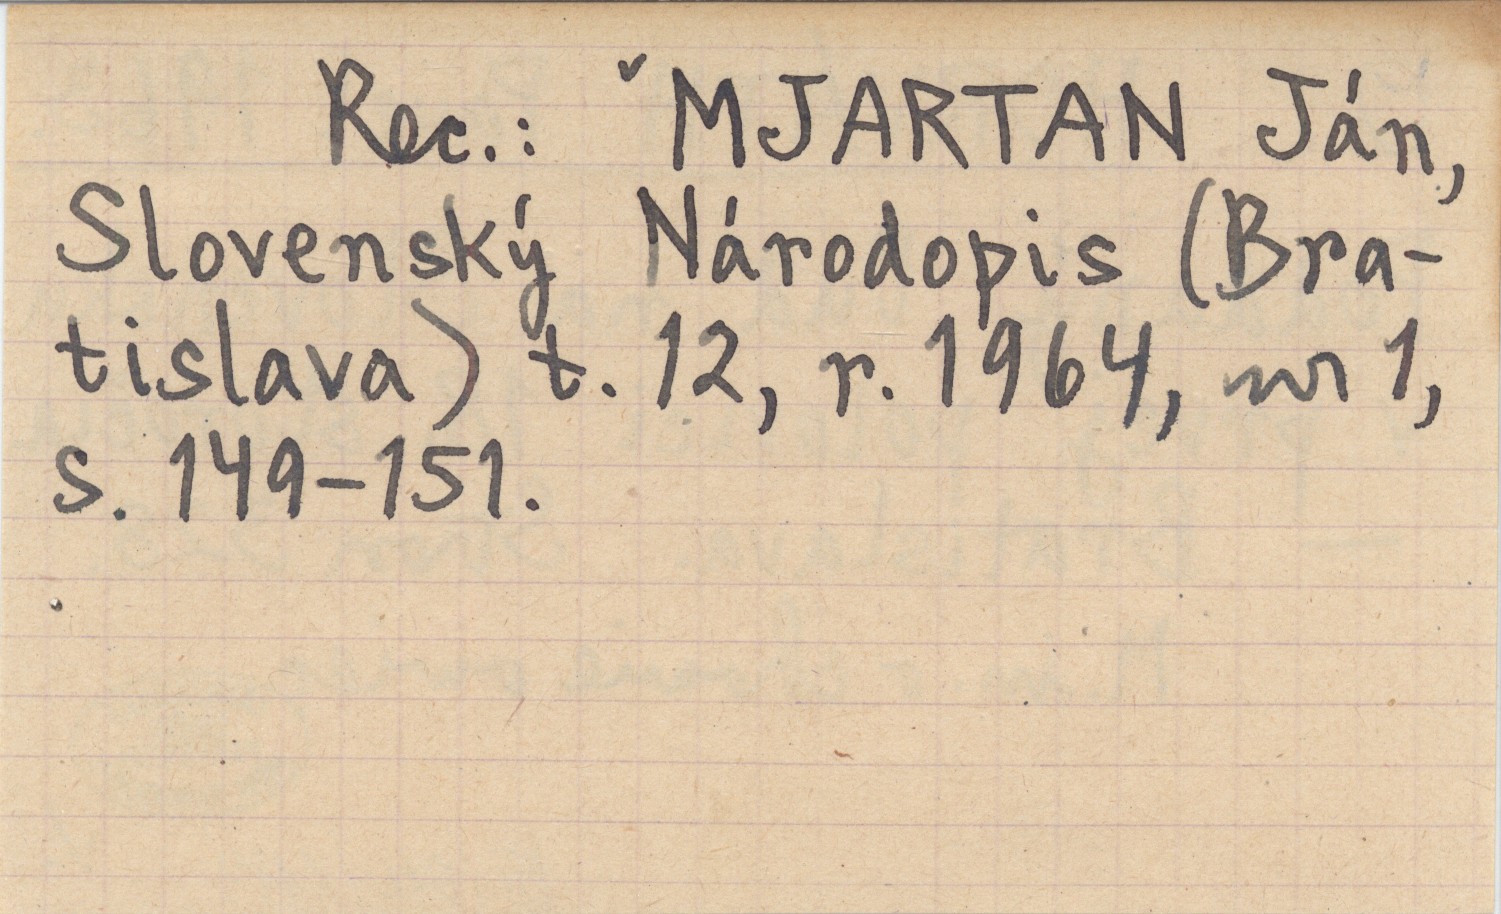 Rec.: ˇMJARTAN Ján,
Slovenský Národopis (Bra-
tislava) t. 12, r. 1964, nr 1,
s. 149-151.